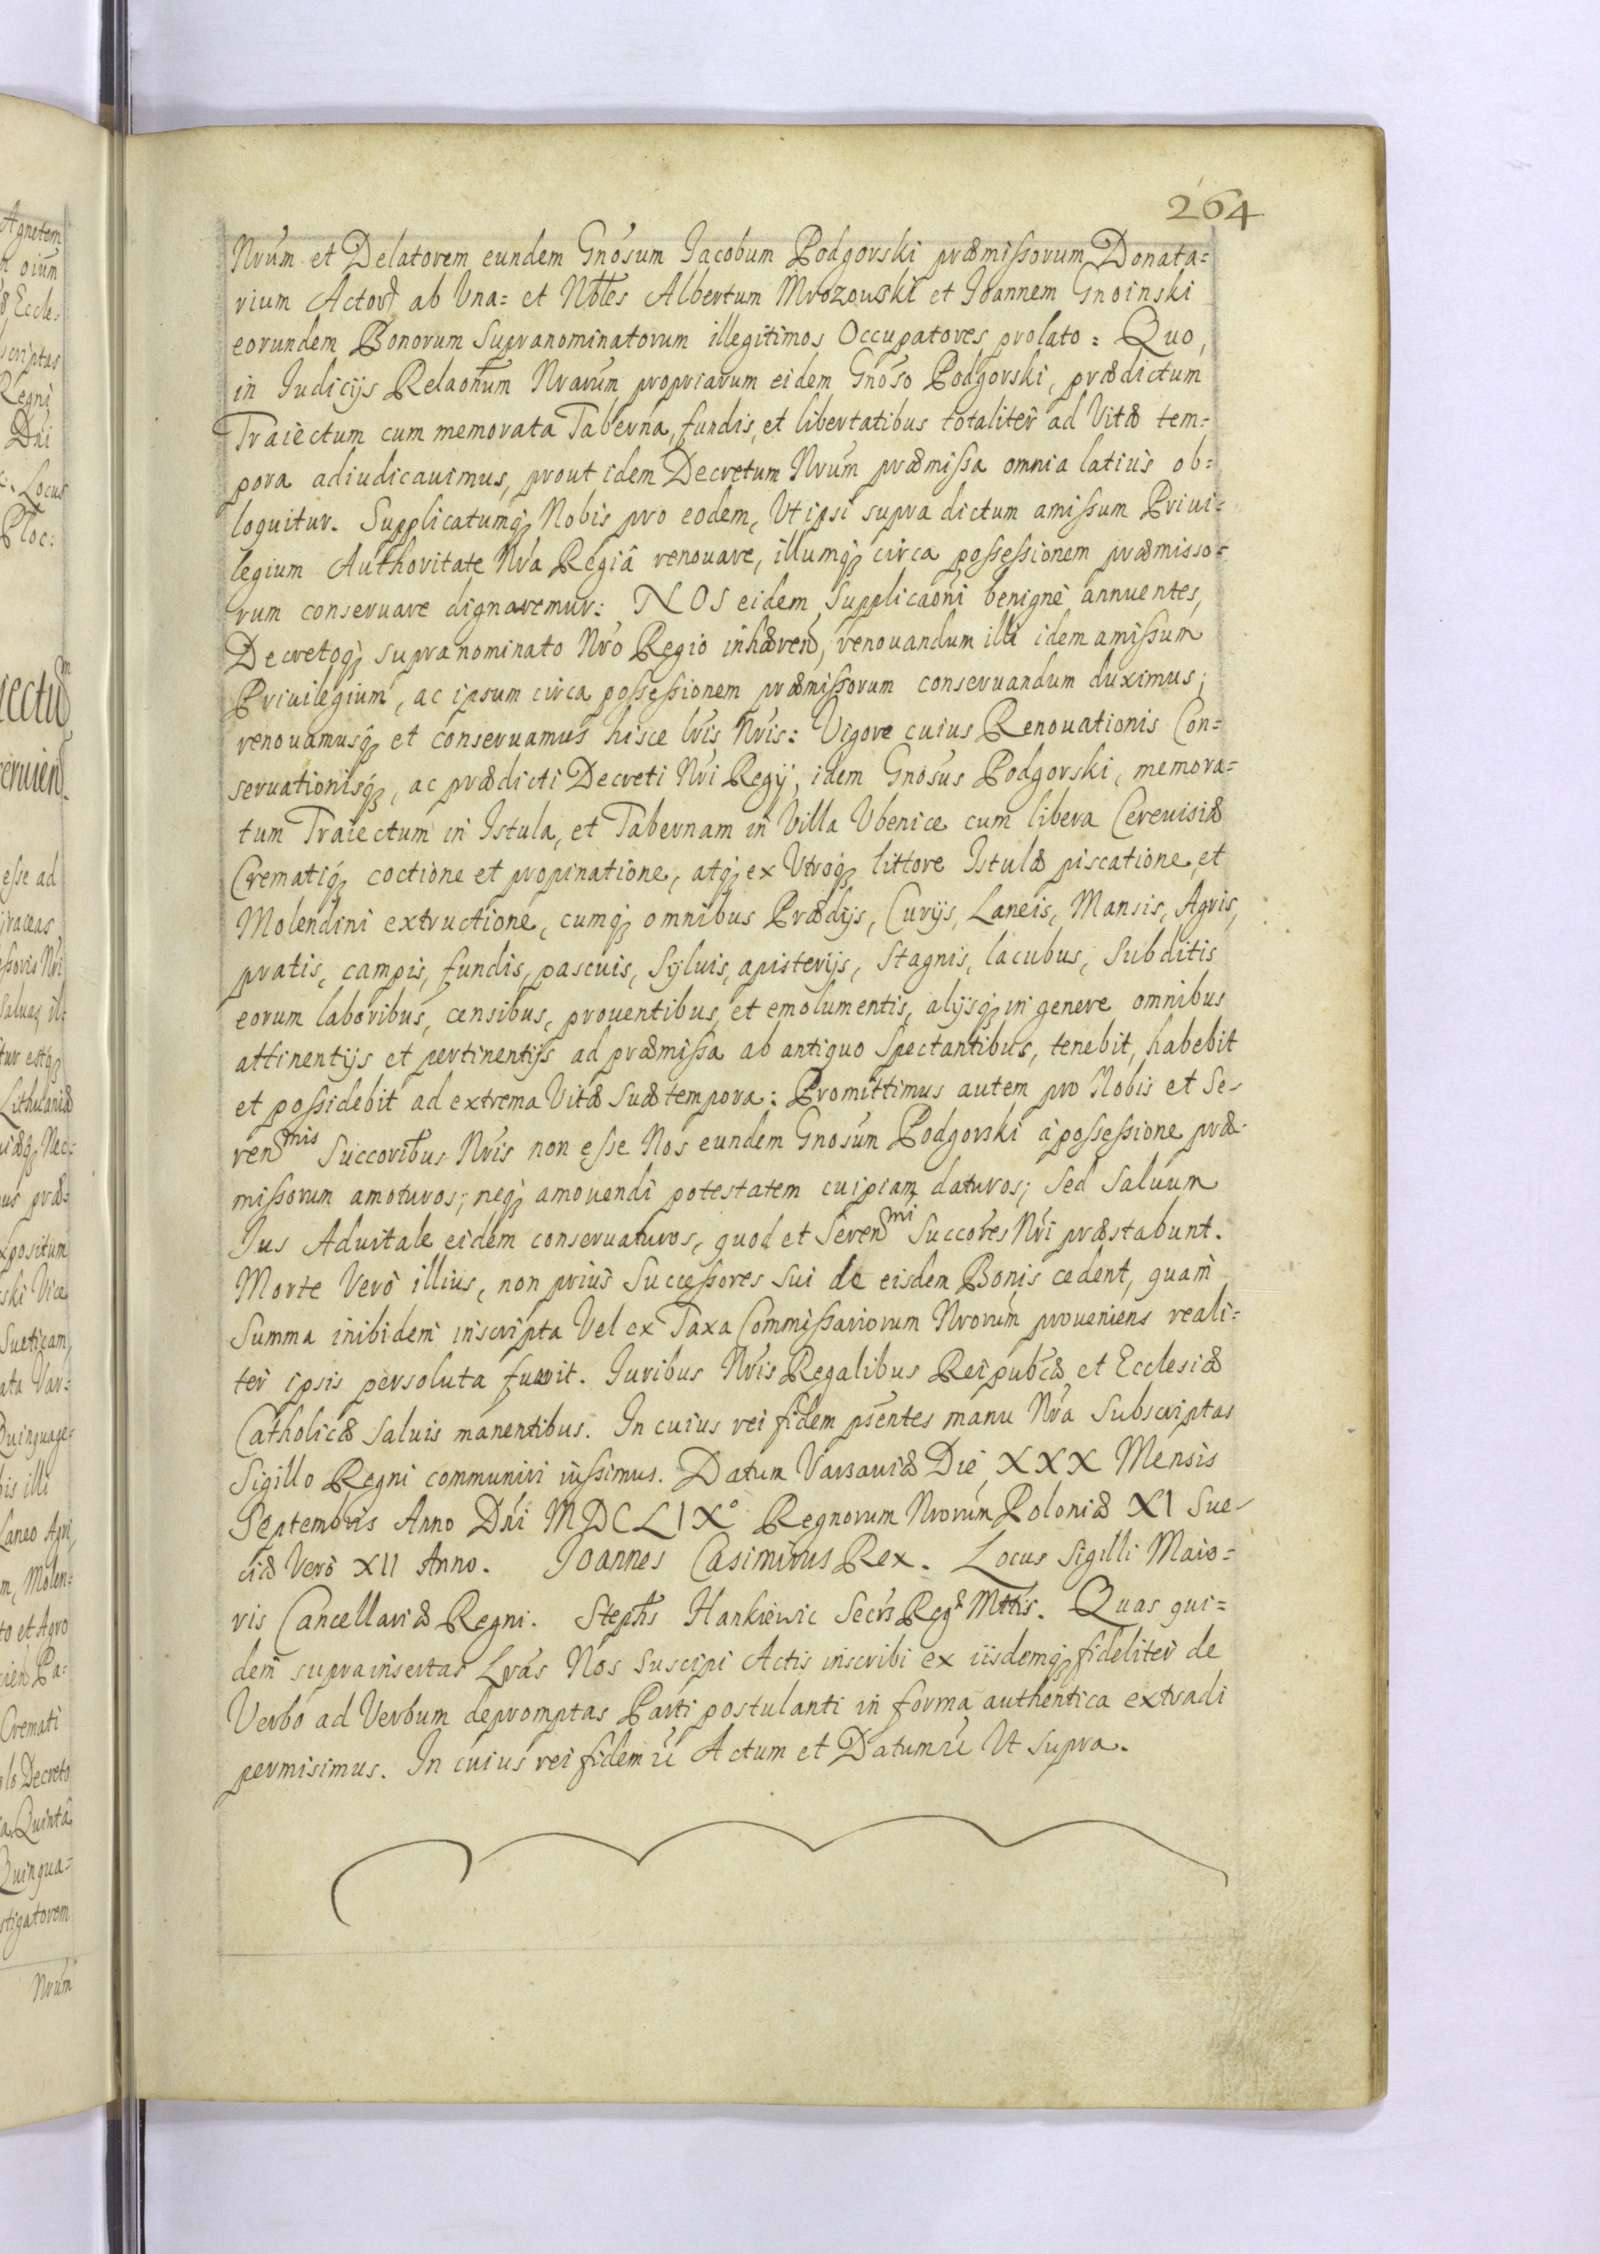 264
Nrum et Delatorem eundem Gnosum Jacobum Podgorski præmissorum Donata=
rium Actorē ab Una= et Nbles Albertum Mrozowski et Joannem Gnoinski
eorundem Bonorum Supranominatorum illegitimos Occupatores prolato: Quo,
in Judicijs Relaonum Nrarum propriarum eidem Gnoso Podgorski, prædictum
Traiectum cum memorata Taberna, fundis, et libertatibus totaliter ad Vitæ tem=
pora adiudicauimus, prout idem Decretum Nrum præmissa omnia latius ob=
loquitur. Supplicatumq; Nobis pro eodem, Ut ipsi supra dictum amissum Priui=
legium Authoritate Nra Regiâ renouare, illumq; circa possessionem præmisso=
rum conseruare dignaremur: NOS eidem Supplicaoni benignè annuentes,
Decretoq; supranominato Nro Regio inhæren, renouandum illi idem amissum
Priuilegium, ac ipsum circa possessionem præmissorum conseruandum duximus;
renouamusq; et conseruamus hisce lris Nris: Vigore cuius Renouationis Con=
seruationisq;, ac prædicti Decreti Nri Regij, idem Gnosus Podgorski, memora=
tum Traiectum in Istula, et Tabernam in Villa Ubenice cum libera Cereuisiæ
Crematiq; coctione et propinatione, atq; ex Utroq; littore Istulæ piscatione, et
Molendini extructione, cumq; omnibus Prædijs, Curijs, Laneis, Mansis, Agris,
pratis, campis, fundis, pascuis, Syluis, apisterijs, Stagnis, lacubus, Subditis
eorum laboribus, censibus, prouentibus, et emolumentis, alijsq; in genere omnibus
attinentijs et pertinentijs ad præmissa ab antiquo Spectantibus, tenebit, habebit
et possidebit ad extrema Vitæ Suæ tempora: Promittimus autem pro Nobis et Se-
renmis Succoribus Nris non esse Nos eundem Gnosum Podgorski à possessione præ-
missorum amoturos; neq; amouendi potestatem cuipiam daturos; Sed Saluum
Jus Aduitale eidem conseruaturos, quod et Serenmi Succores Nri præstabunt.
Morte Verò illius, non priùs Successores Sui de eisdem Bonis cedent, quam
Summa inibidem inscripta Vel ex Taxa Commissariorum Nrorum proueniens reali=
ter ipsis persoluta fuerit. Juribus Nris Regalibus Reipubcæ et Ecclesiæ
Catholicæ Saluis manentibus. In cuius rei fidem psentes manu Nra Subscriptas
Sigillo Regni communiri iussimus. Datum Varsauiæ Die XXX Mensis
Septembris Anno Dni MDCLIXº Regnorum Nrorum Poloniæ XI Sue-
ciæ Verò XII Anno. Joannes Casimirus Rex. Locus Sigilli Maio=
ris Cancellariæ Regni. Stephs Hankiewic Secrs Regæ Mttis. Quas qui=
dem suprainsertas Lras Nos Suscipi Actis inscribi ex iisdemq; fideliter de
Verbo ad Verbum depromptas Parti postulanti in forma authentica extradi
permisimus. In cuius rei fidem &c Actum et Datum &c Ut Supra.